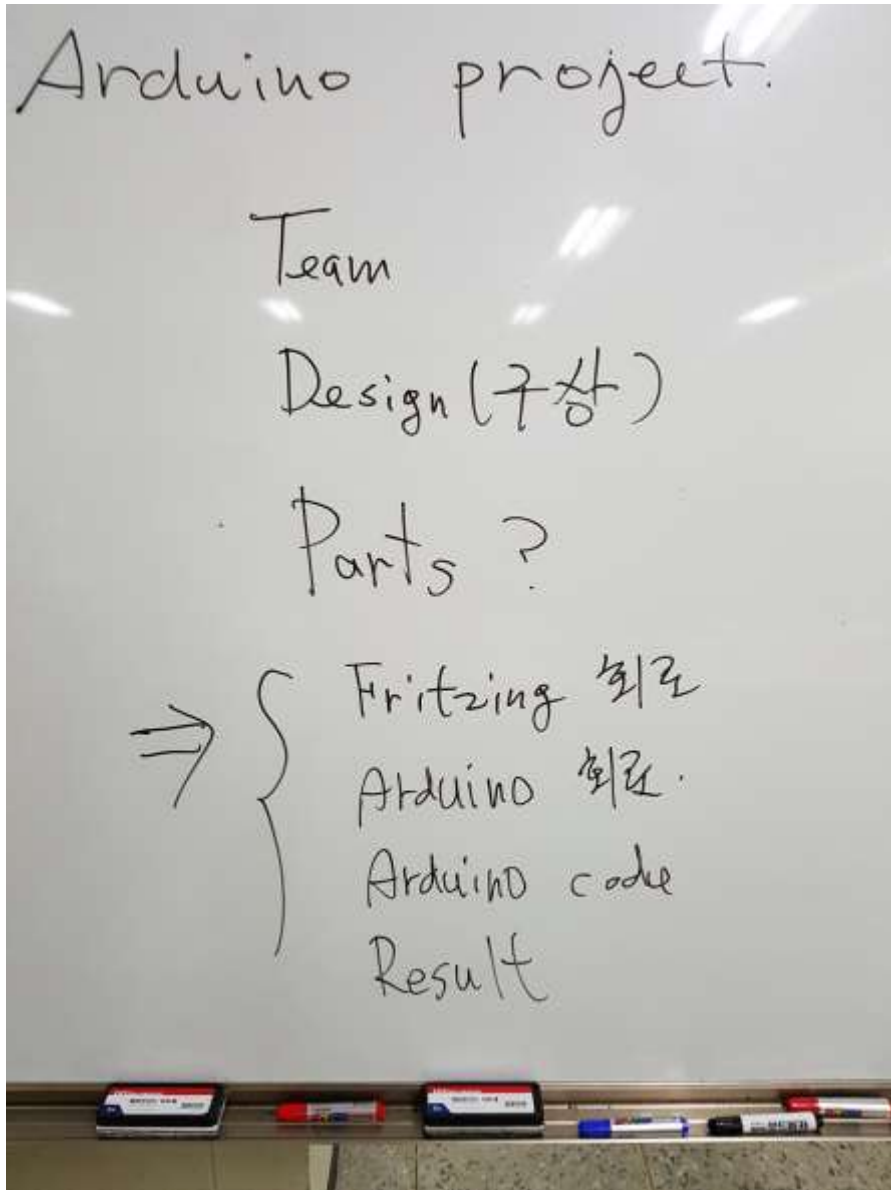 Arduino project.
Team
Design (구상)
Parts ?
⇒ { Fritzing 회로
Arduino 회로.
Arduino code
Result